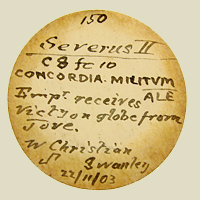 150
Severus II
C 8 fc 10
CONCORDIA. MILITVM
ALE
Empr receives
Vict'y on globe from
Jove.
W Christian
Swanley
22/11/03